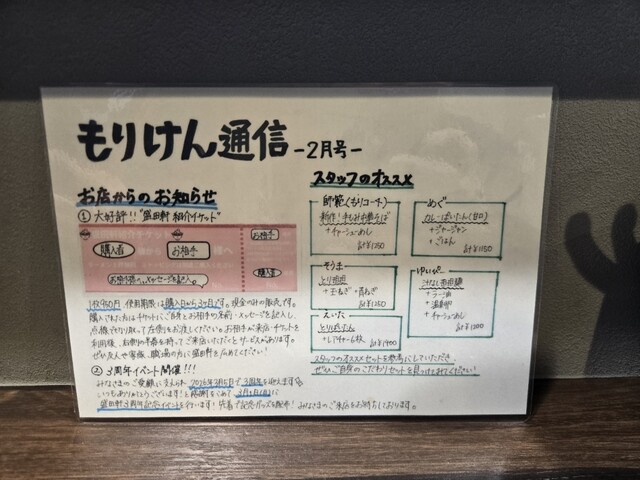 もりけん通信 -2月号-
お店からのお知らせ
① 大好評!! "盛田軒 紹介チケット"
購入者
お相手
お相手
購入者
お相手様へ、メッセージを記入。
1枚950円、使用期限は購入日から3ヶ月です。現金のみの販売です。
購入された方はチケットに、ご自身とお相手の名前・メッセージを記入し、
点線で切り取って左側をお渡しください。お相手が来店・チケットを
利用後、お側の半券を持ってご来店いただくとサービスがあります。
ぜひ友人や家族、職場の方に盛田軒を広めてください!
② 3周年イベント開催!!!
みなさまのご愛顧に支えられ、2026年3月5日で3周年を迎えます。
いつもありがとうございます!と感謝をこめて、
盛田軒3周年記念イベントを行います! 先着で記念グッズを配布! みなさまのご来店をお待ちしております。
スタッフのオススメ
師範(もりコーチ)
新作! 手もみ中華そば
+チャーシューめし
計¥1250
めぐ
カレーぱいたん(甘口)
+ジャージャン
+ごはん
計¥1150
そうま
+玉ねぎ +青ねぎ
計¥1250
えいた
とりぱいたん
+レアチャー6枚
計¥1400
+ラー油
+温泉卵
+チャーシューめし
計¥1200
スタッフのオススメセットを参考にしていただき、
ぜひ、ご自身のこだわりセットを見つけてみてください!